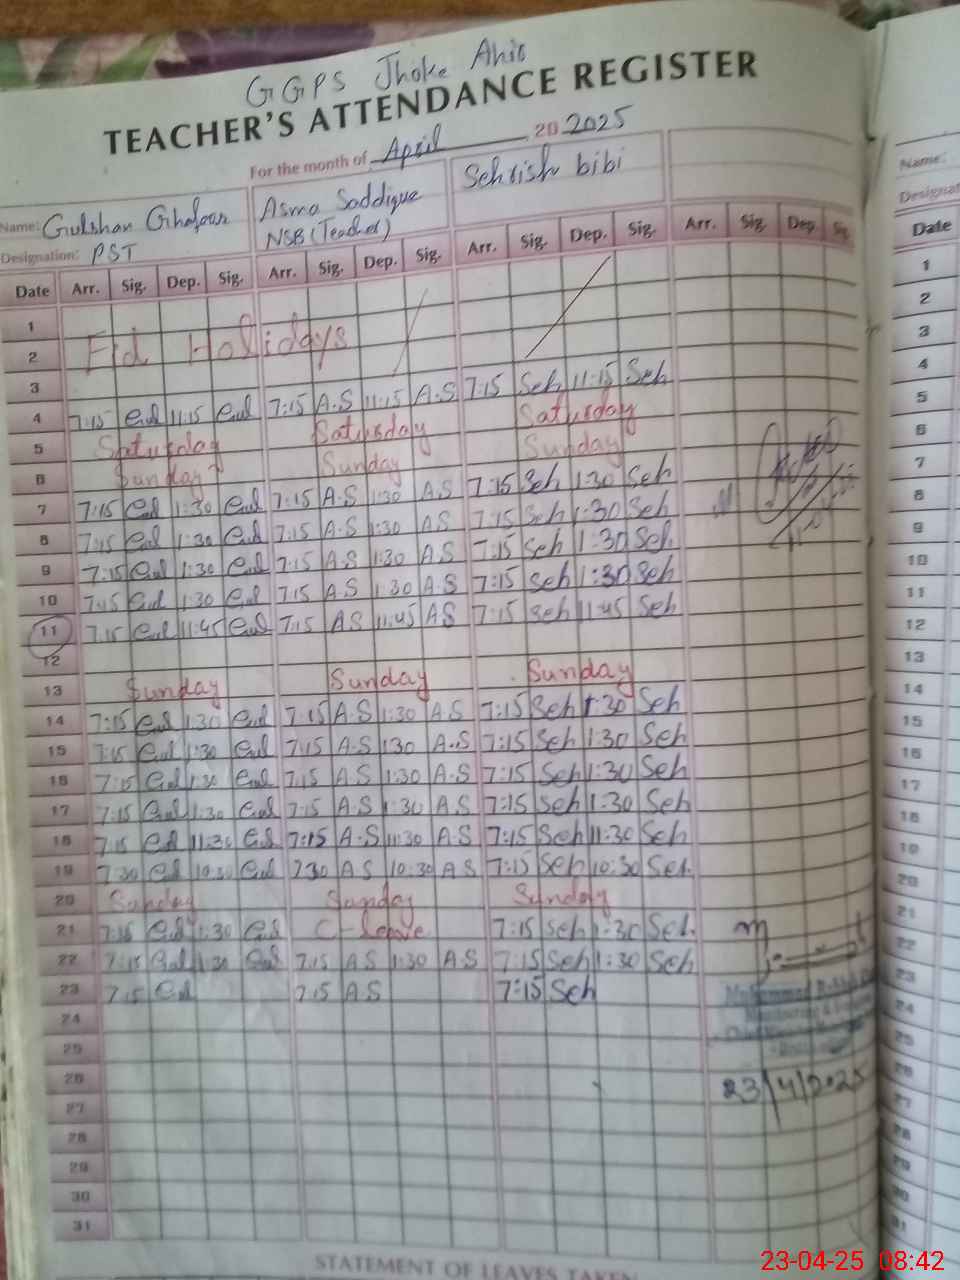 GGPS Jhoke Ahir
TEACHER'S ATTENDANCE REGISTER
For the month of April 20 2025
Name: Gulshan Ghafoor Asma Saddique Sehrish bibi
Designation: PST NSB (Teacher)
Date Arr. Sig. Dep. Sig. Arr. Sig. Dep. Sig. Arr. Sig. Dep. Sig. Arr. Sig. Dep. Sig.
1
2 Eid Holidays
3
4 7:15 Gul 11:15 Gul 7:15 A.S 11:15 A.S 7:15 Seh 11:15 Seh
5 Saturday Saturday Saturday
6 Sunday Sunday Sunday
7 7:15 Gul 1:30 Gul 7:15 A.S 1:30 A.S 7:15 Seh 1:30 Seh
8 7:15 Gul 1:30 Gul 7:15 A.S 1:30 AS 7:15 Seh 1:30 Seh
9 7:15 Gul 1:30 Gul 7:15 A.S 1:30 A.S 7:15 Seh 1:30 Seh
10 7:15 Gul 1:30 Gul 7:15 A.S 1:30 A.S 7:15 Seh 1:30 Seh
11 7:15 Gul 11:45 Gul 7:15 AS 11:45 AS 7:15 Seh 11:45 Seh
12
13 Sunday Sunday Sunday
14 7:15 Gul 1:30 Gul 7:15 A.S 1:30 A.S 7:15 Seh 1:30 Seh
15 7:15 Gul 1:30 Gul 7:15 A.S 1:30 A.S 7:15 Seh 1:30 Seh
16 7:15 Gul 1:30 Gul 7:15 AS 1:30 A.S 7:15 Seh 1:30 Seh
17 7:15 Gul 1:30 Gul 7:15 A.S 1:30 AS 7:15 Seh 1:30 Seh
18 7:15 Gul 11:30 Gul 7:15 A.S 11:30 AS 7:15 Seh 11:30 Seh
19 7:30 Gul 10:30 Gul 730 AS 10:30 AS 7:15 Seh 10:30 Seh
20 Sunday Sunday Sunday
21 7:15 Gul 1:30 Gul C-leave 7:15 Seh 1:30 Seh
22 7:15 Gul 1:30 Gul 7:15 AS 1:30 AS 7:15 Seh 1:30 Seh
23 7:15 Gul 7:15 AS 7:15 Seh
24
25
26 23/4/2025
27
28
29
30
31
STATEMENT OF LEAVES TAKEN
Name:
Designat
Date
1
2
3
4
5
6
7
8
9
10
11
12
13
14
15
16
17
18
19
20
21
22
23
24
25
26
27
28
29
30
31
23-04-25 08:42